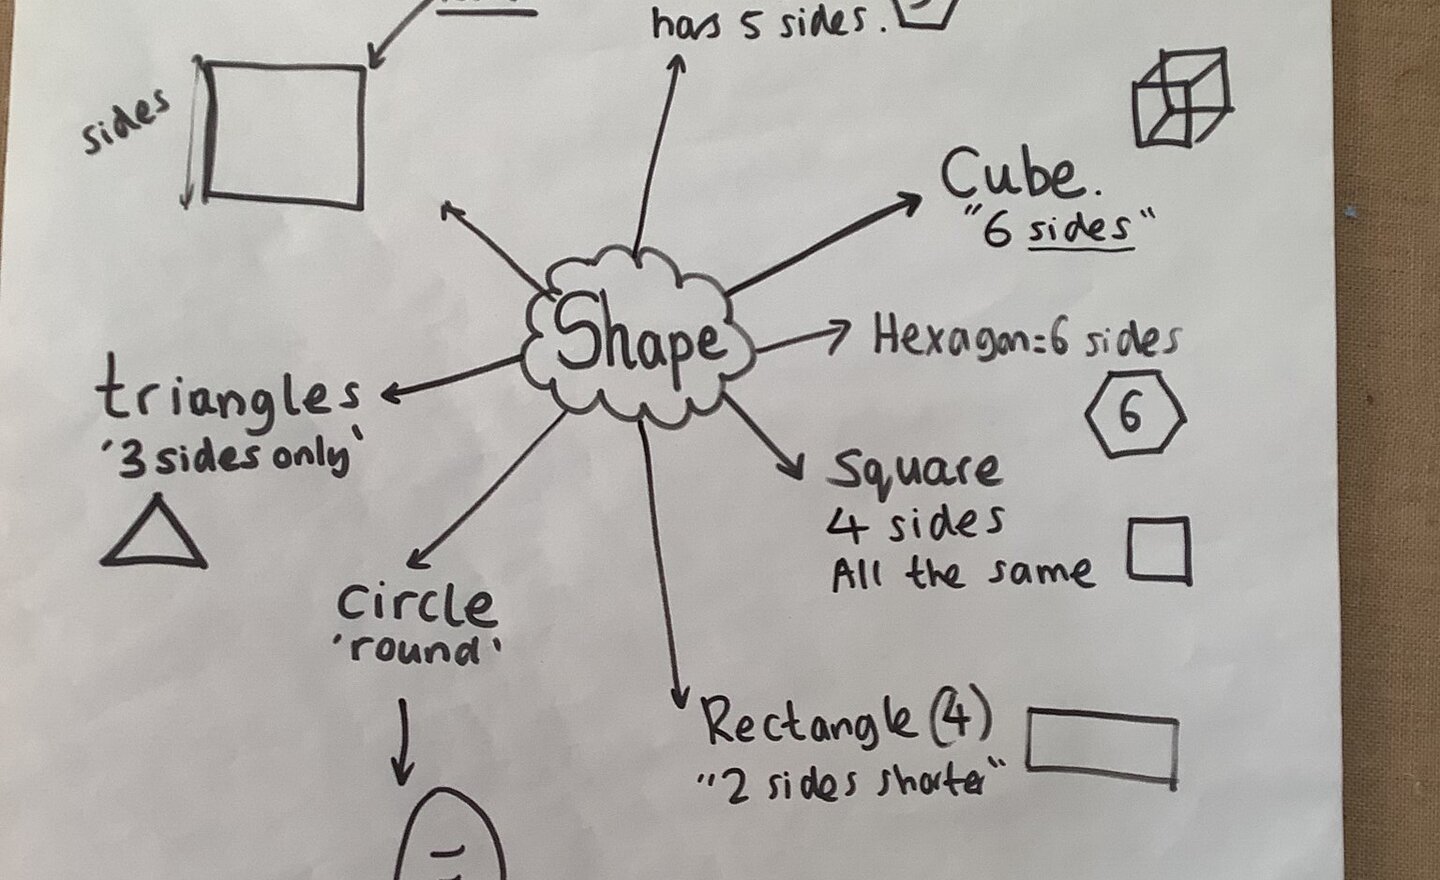 has 5 sides.
sides
Cube.
"6 sides"
Shape
Hexagon=6 sides
6
triangles
'3 sides only'
Square
4 sides
All the same
Circle
'round'
Rectangle (4)
"2 sides shorter"